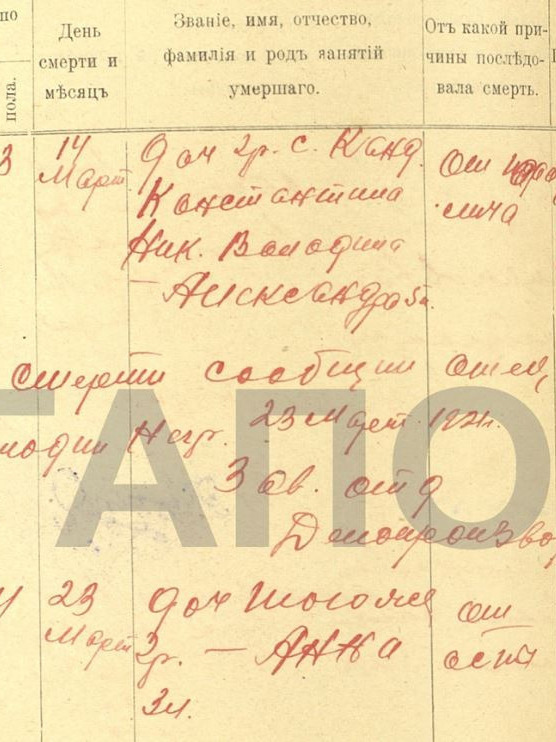 по
пола.
День
смерти и
мѣсяцъ
Званіе, имя, отчество,
фамилія и родъ занятій
умершаго.
Отъ какой при-
чины послѣдо-
вала смерть.
3
14
Март
доч гр. с. Канд.
Константина
Ник. Володина
— Александра 5л.
от
смерти сообщил отец
лодин Негр. 23 Март 192 г.
Зав. отд
Делопроизвод
23
Март
доч тогоже
гр. — Анна
3л.
от
оспы
ГАПО